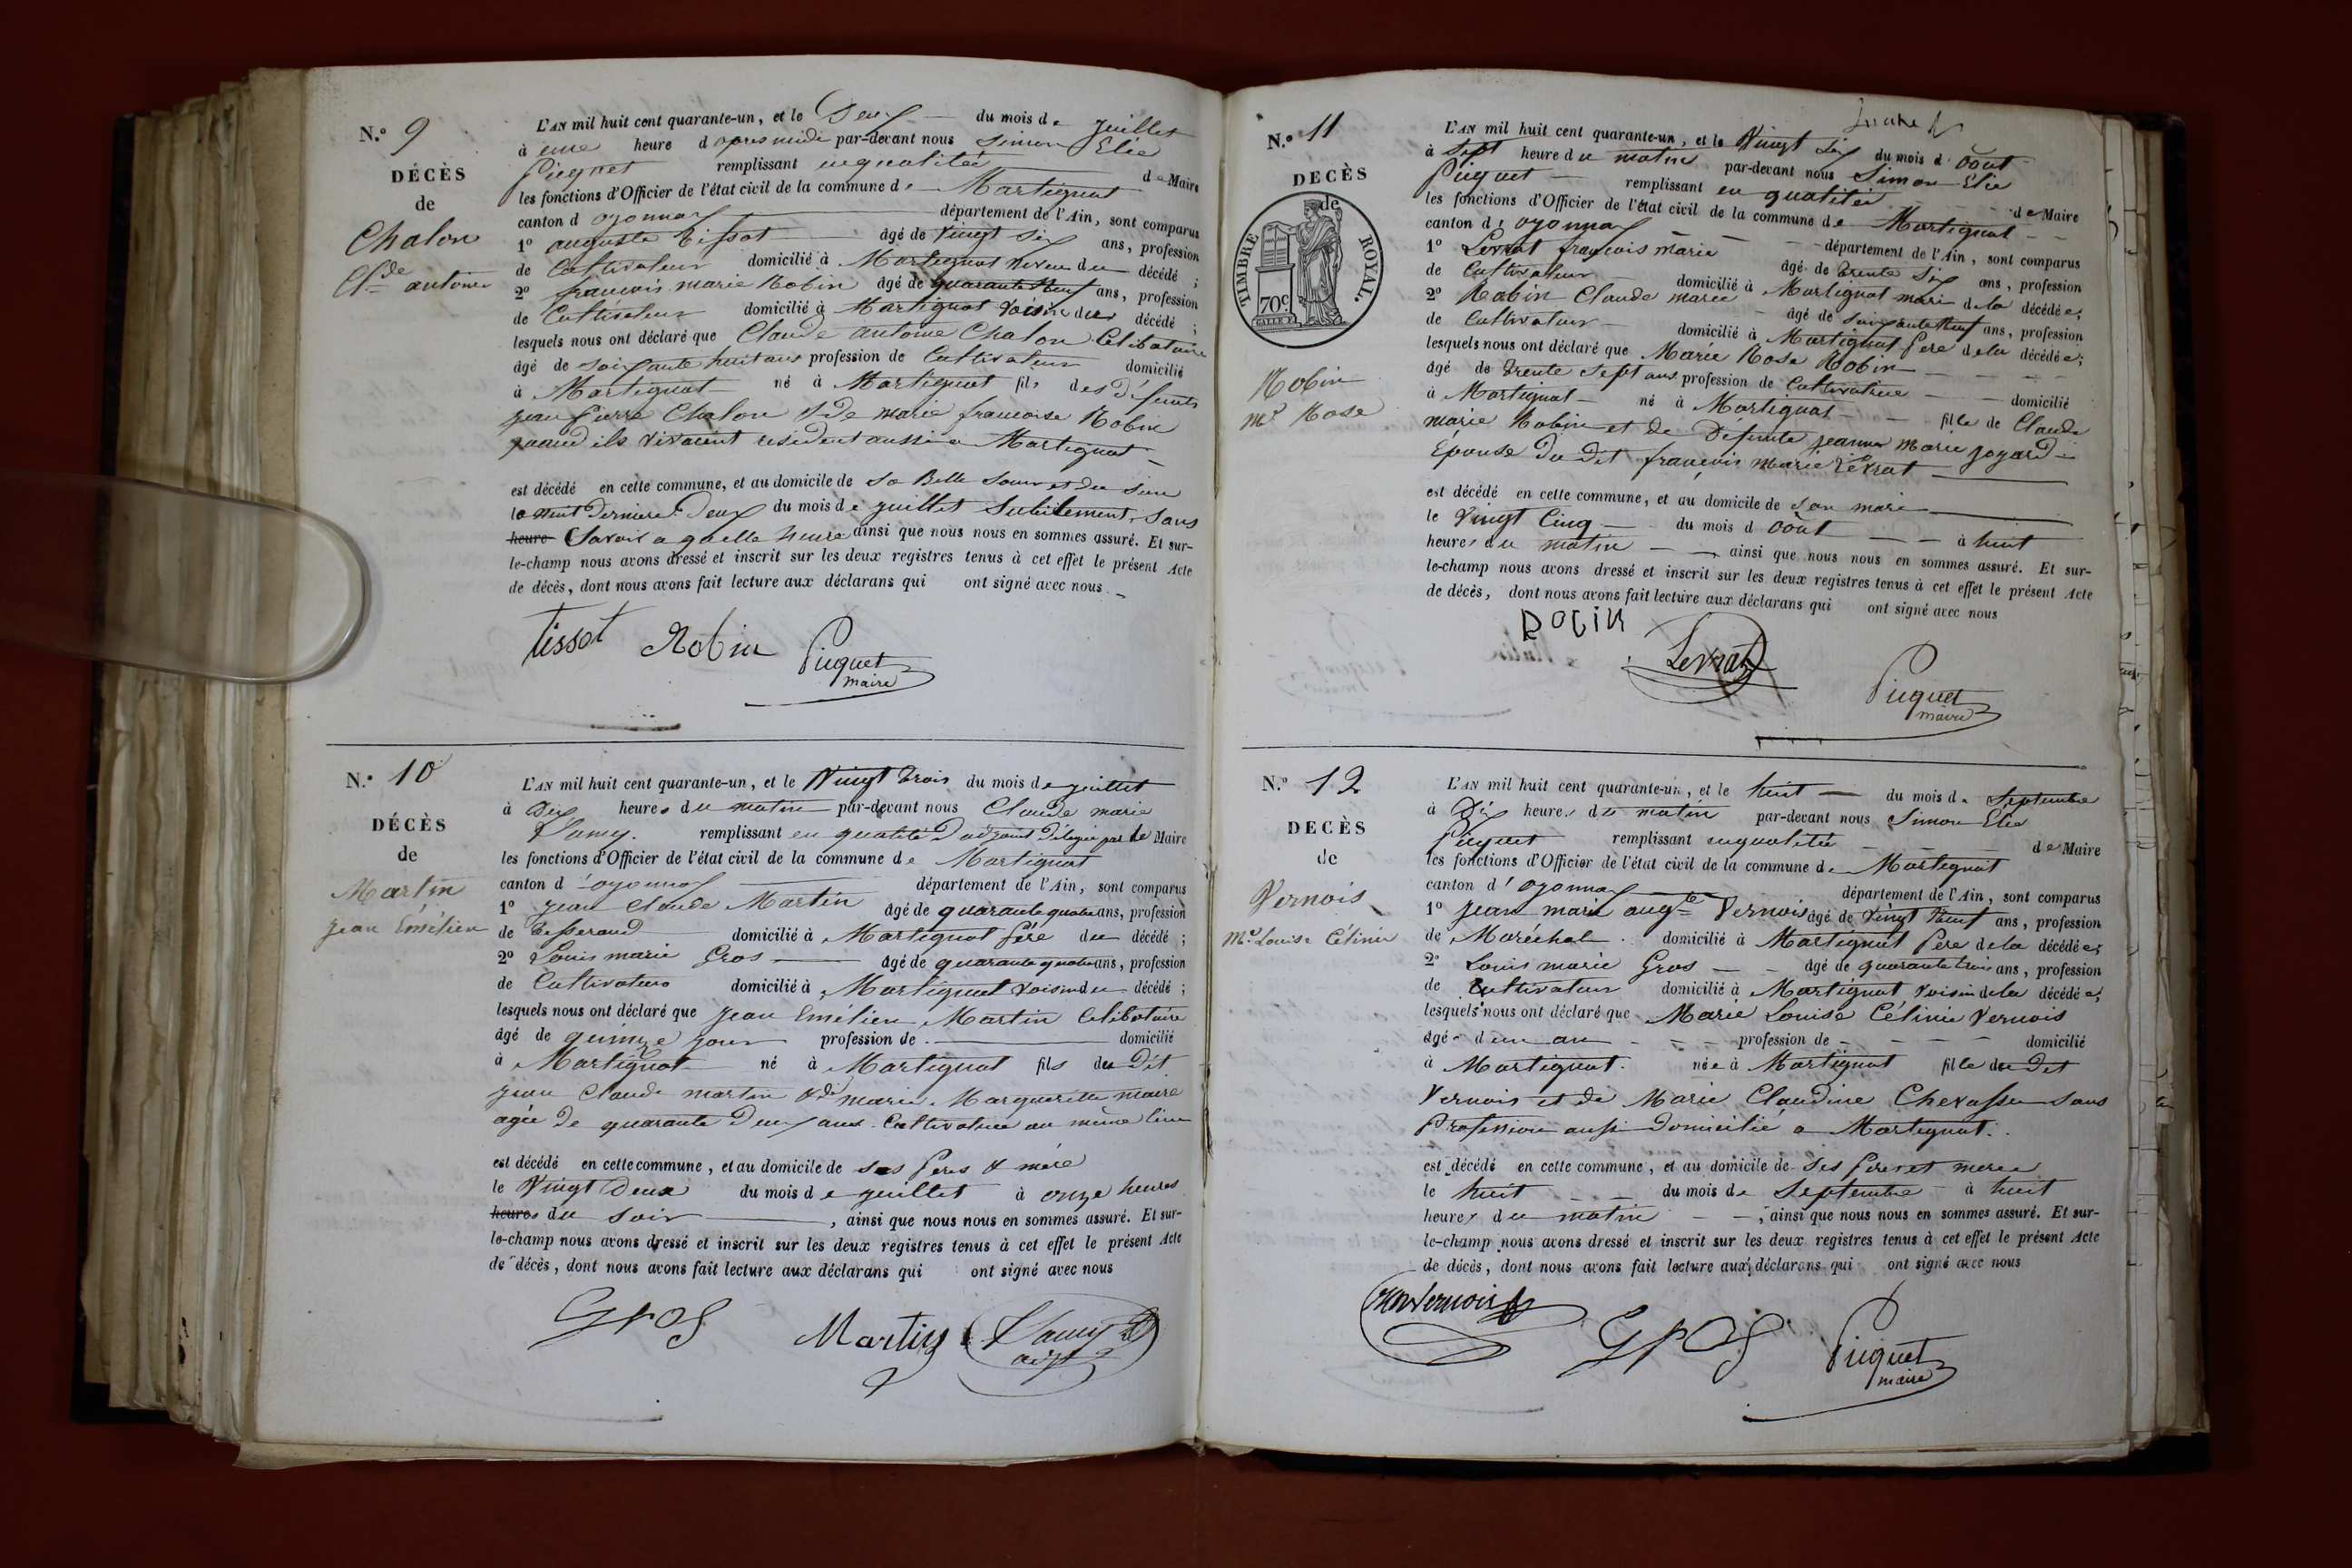 N.o 9
DÉCÈS
de
Chalon
Cl.de antoine
L'AN mil huit cent quarante-un, et le Deux du mois de juillet
à une heure d apres midi par-devant nous Simon Elie
Puquet remplissant en qualitée de Maire
les fonctions d'Officier de l'état civil de la commune de Martignat
canton d oyonnax département de l'Ain, sont comparus
1o auguste Tissot âgé de vingt six ans, profession
de Cultivateur domicilié à Martignat neveu du décédé ;
2o francois marie Robin âgé de quarante neuf ans, profession
de Cultivateur domicilié à Martignat voisin du décédé ;
lesquels nous ont déclaré que Claude antoine Chalon Celibataire
âgé de soixante huit ans profession de Cultivateur domicilié
à Martignat né à Martignat fils des défunts
jean pierre Chalon & de marie francoise Robin
quand ils vivaient resident aussi a Martignat
est décédé en cette commune, et au domicile de sa Belle soeur et du sien
la nuit derniere Deux du mois de juillet subitement, sans
heure savoir a quelle heure ainsi que nous nous en sommes assuré. Et sur-
le-champ nous avons dressé et inscrit sur les deux registres tenus à cet effet le présent Acte
de décès, dont nous avons fait lecture aux déclarans qui ont signé avec nous
tissot Robin Puquet
maire
N.o 10
DÉCÈS
de
Martin
jean Emélien
L'AN mil huit cent quarante-un, et le Vingt trois du mois de juillet
à Dix heures du matin par-devant nous Claude marie
Lamy. remplissant en qualité d'adjoint délégué par le Maire
les fonctions d'Officier de l'état civil de la commune de Martignat
canton d' oyonnax département de l'Ain, sont comparus
1o jean Claude Martin âgé de quarante quatre ans, profession
de tisserand domicilié à Martignat Père du décédé ;
2o Louis marie Gros âgé de quarante quatre ans, profession
de Cultivateur domicilié à Martignat voisin du décédé ;
lesquels nous ont déclaré que jean Emelien Martin Celibataire
âgé de quinze jours profession de domicilié
à Martignat né à Martignat fils du Dit
jean Claude martin & de marie Marguerite maire
agée de quarante Deux ans Cultivatrice au même lieu
est décédé en cette commune, et au domicile de ses Peres & mere
le Vingt Deux du mois de juillet à onze heures
heures du soir, ainsi que nous nous en sommes assuré. Et sur-
le-champ nous avons dressé et inscrit sur les deux registres tenus à cet effet le présent Acte
de décès, dont nous avons fait lecture aux déclarans qui ont signé avec nous
Gros Martin Lamy
adjt
N.o 11
DÉCÈS
de
TIMBRE ROYAL.
70c.
Robin
m.ie Rose
L'AN mil huit cent quarante-un, et le Vingt Six du mois d' août
à sept heure du matin par-devant nous Simon Elie
Puquet remplissant en qualitée de Maire
les fonctions d'Officier de l'état civil de la commune de Martignat
canton d' oyonnax département de l'Ain, sont comparus
1o Levrat françois marie âgé de trente six ans, profession
de Cultivateur domicilié à Martignat mari de la décédée;
2o Robin Claude marie âgé de soixante neuf ans, profession
de Cultivateur domicilié à Martignat Pere de la décédée;
lesquels nous ont déclaré que Marie Rose Robin
âgé de trente sept ans profession de Cultivatrice domicilié
à Martignat né à Martignat fille de Claude
marie Robin et de Défunte jeanne Marie joyard
Épouse du Dit françois marie Levrat
est décédé en cette commune, et au domicile de son mari
le vingt Cinq du mois d août à huit
heures du matin ainsi que nous nous en sommes assuré. Et sur-
le-champ nous avons dressé et inscrit sur les deux registres tenus à cet effet le présent Acte
de décès, dont nous avons fait lecture aux déclarans qui ont signé avec nous
Robin
Levrat
Puquet
maire
N.o 12
DECÈS
de
Vernois
M.ie Louise Célinie
L'AN mil huit cent quarante-un, et le huit du mois de Septembre
à Dix heures du matin par-devant nous Simon Elie
Puquet remplissant en qualitée de Maire
les fonctions d'Officier de l'état civil de la commune de Martignat
canton d' oyonnax département de l'Ain, sont comparus
1o jean marie aug.te Vernois âgé de vingt neuf ans, profession
de Maréchal domicilié à Martignat Pere de la décédée;
2o Louis marie Gros âgé de quarante trois ans, profession
de Cultivateur domicilié à Martignat voisin de la décédée;
lesquels nous ont déclaré que Marie Louise Célinie Vernois
âgé d'un an profession de domicilié
à Martignat. née à Martignat fille du Dit
Vernois et de Marie Claudine Chevassu sans
Profession aussi domicilié a Martignat.
est décédé en cette commune, et au domicile de ses Peres et meres
le huit du mois de Septembre à huit
heures du matin, ainsi que nous nous en sommes assuré. Et sur-
le-champ nous avons dressé et inscrit sur les deux registres tenus à cet effet le présent Acte
de décès, dont nous avons fait lecture aux déclarans qui ont signé avec nous
Vernois Gros Puquet
maire